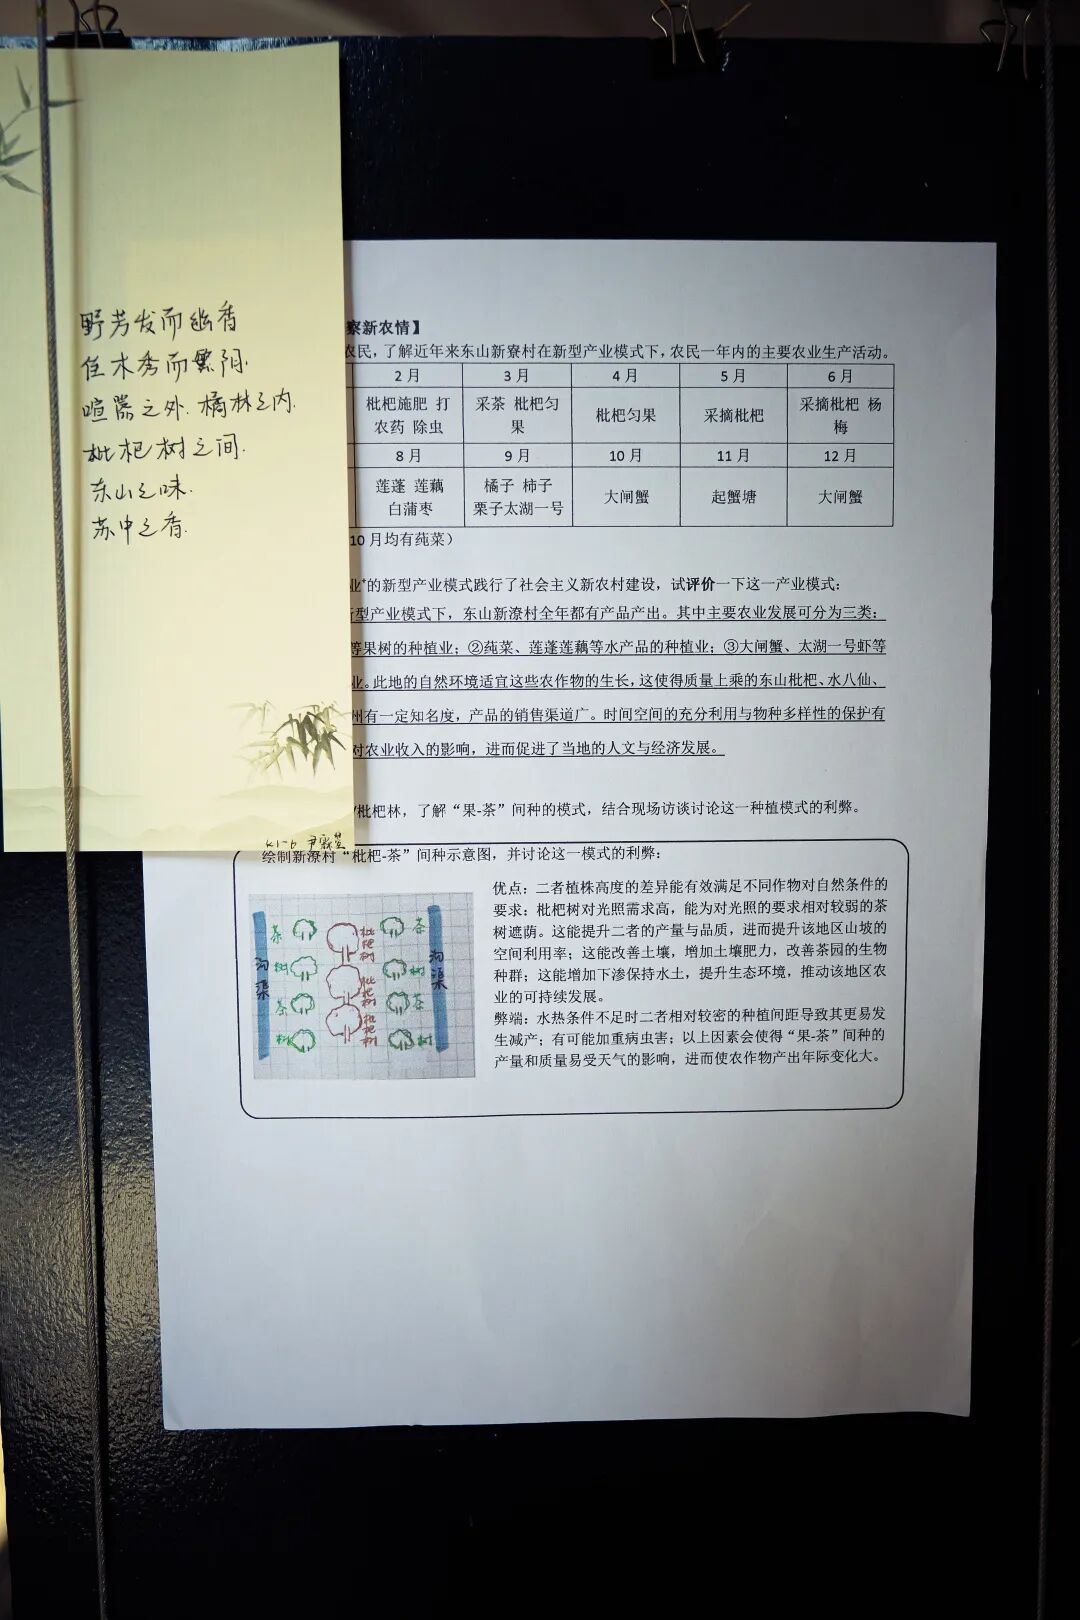 野芳发而幽香
佳木秀而繁阴.
喧嚣之外.橘林之内.
枇杷树之间.
东山之味.
苏中之香.
K1-6
察新农情】
农民，了解近年来东山新寮村在新型产业模式下，农民一年内的主要农业生产活动。
2月 3月 4月 5月 6月
枇杷施肥 打 采茶 枇杷匀 枇杷匀果 采摘枇杷 采摘枇杷 杨
农药 除虫 果 梅
8月 9月 10月 11月 12月
莲蓬 莲藕 橘子 柿子 大闸蟹 起蟹塘 大闸蟹
白蒲枣 栗子太湖一号
10月均有莼菜）
业⁺的新型产业模式践行了社会主义新农村建设，试评价一下这一产业模式：
新型产业模式下，东山新潦村全年都有产品产出。其中主要农业发展可分为三类：
等果树的种植业；②莼菜、莲蓬莲藕等水产品的种植业；③大闸蟹、太湖一号虾等
业。此地的自然环境适宜这些农作物的生长，这使得质量上乘的东山枇杷、水八仙、
州有一定知名度，产品的销售渠道广。时间空间的充分利用与物种多样性的保护有
对农业收入的影响，进而促进了当地的人文与经济发展。
枇杷林，了解“果-茶”间种的模式，结合现场访谈讨论这一种植模式的利弊。
绘制新潦村“枇杷-茶”间种示意图，并讨论这一模式的利弊：
沟渠
茶
树
茶
树
枇杷树
枇杷树
枇杷树
茶
树
茶
树
沟渠
优点：二者植株高度的差异能有效满足不同作物对自然条件的
要求：枇杷树对光照需求高，能为对光照的要求相对较弱的茶
树遮荫。这能提升二者的产量与品质，进而提升该地区山坡的
空间利用率；这能改善土壤，增加土壤肥力，改善茶园的生物
种群；这能增加下渗保持水土，提升生态环境，推动该地区农
业的可持续发展。
弊端：水热条件不足时二者相对较密的种植间距导致其更易发
生减产；有可能加重病虫害；以上因素会使得“果-茶”间种的
产量和质量易受天气的影响，进而使农作物产出年际变化大。